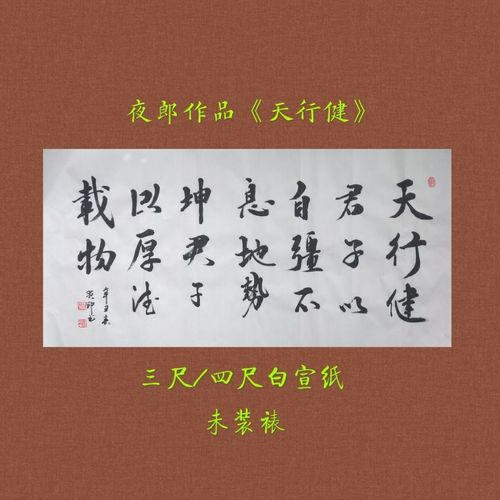 夜郎作品《天行健》
天行健
君子以
自彊不
息地勢
坤君子
以厚德
載物
辛丑春
夜郎书
三尺/四尺白宣纸
未装裱